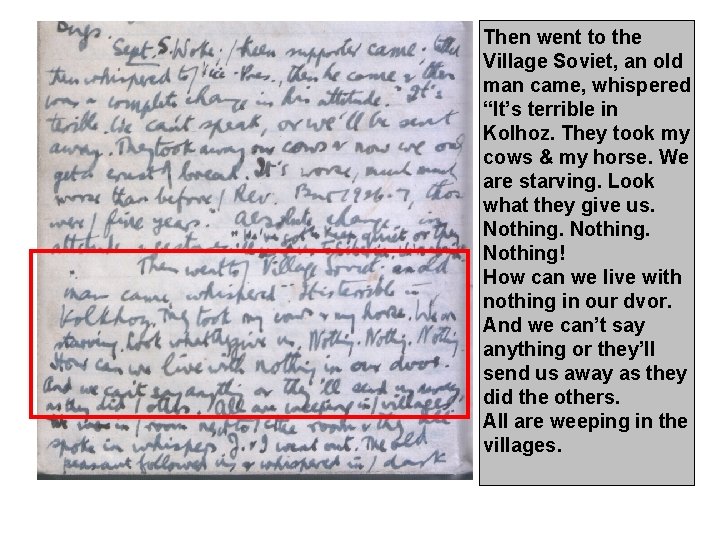 Sept. 5. Woke. / Keen supporter came.
then whispered to / Vice-Pres. then he came & there
was a complete change in his attitude. "It's
terrible. We can't speak, or we'll be sent
away. They took away our cows & now we only
get a crust of bread. It's worse, much much
worse than before / Rev. But 1926-7, those
were / fine years." Absolute change in
attitude "We've got to keep quiet or they
Then went to / Village Soviet. an old
man came, whispered "It is terrible in
Kolkhoz. They took my cows & my horse. We are
starving. Look what they give us. Nothing. Nothing. Nothing
How can we live with nothing in our dvor.
And we can't say anything or they'll send us away
as they did / others. All are weeping in / villages
in / room next to / room & they all
spoke in whispers. J. & I went out. The old
peasant followed us & whispered in / dark
Then went to the
Village Soviet, an old
man came, whispered
“It’s terrible in
Kolhoz. They took my
cows & my horse. We
are starving. Look
what they give us.
Nothing. Nothing.
Nothing!
How can we live with
nothing in our dvor.
And we can’t say
anything or they’ll
send us away as they
did the others.
All are weeping in the
villages.